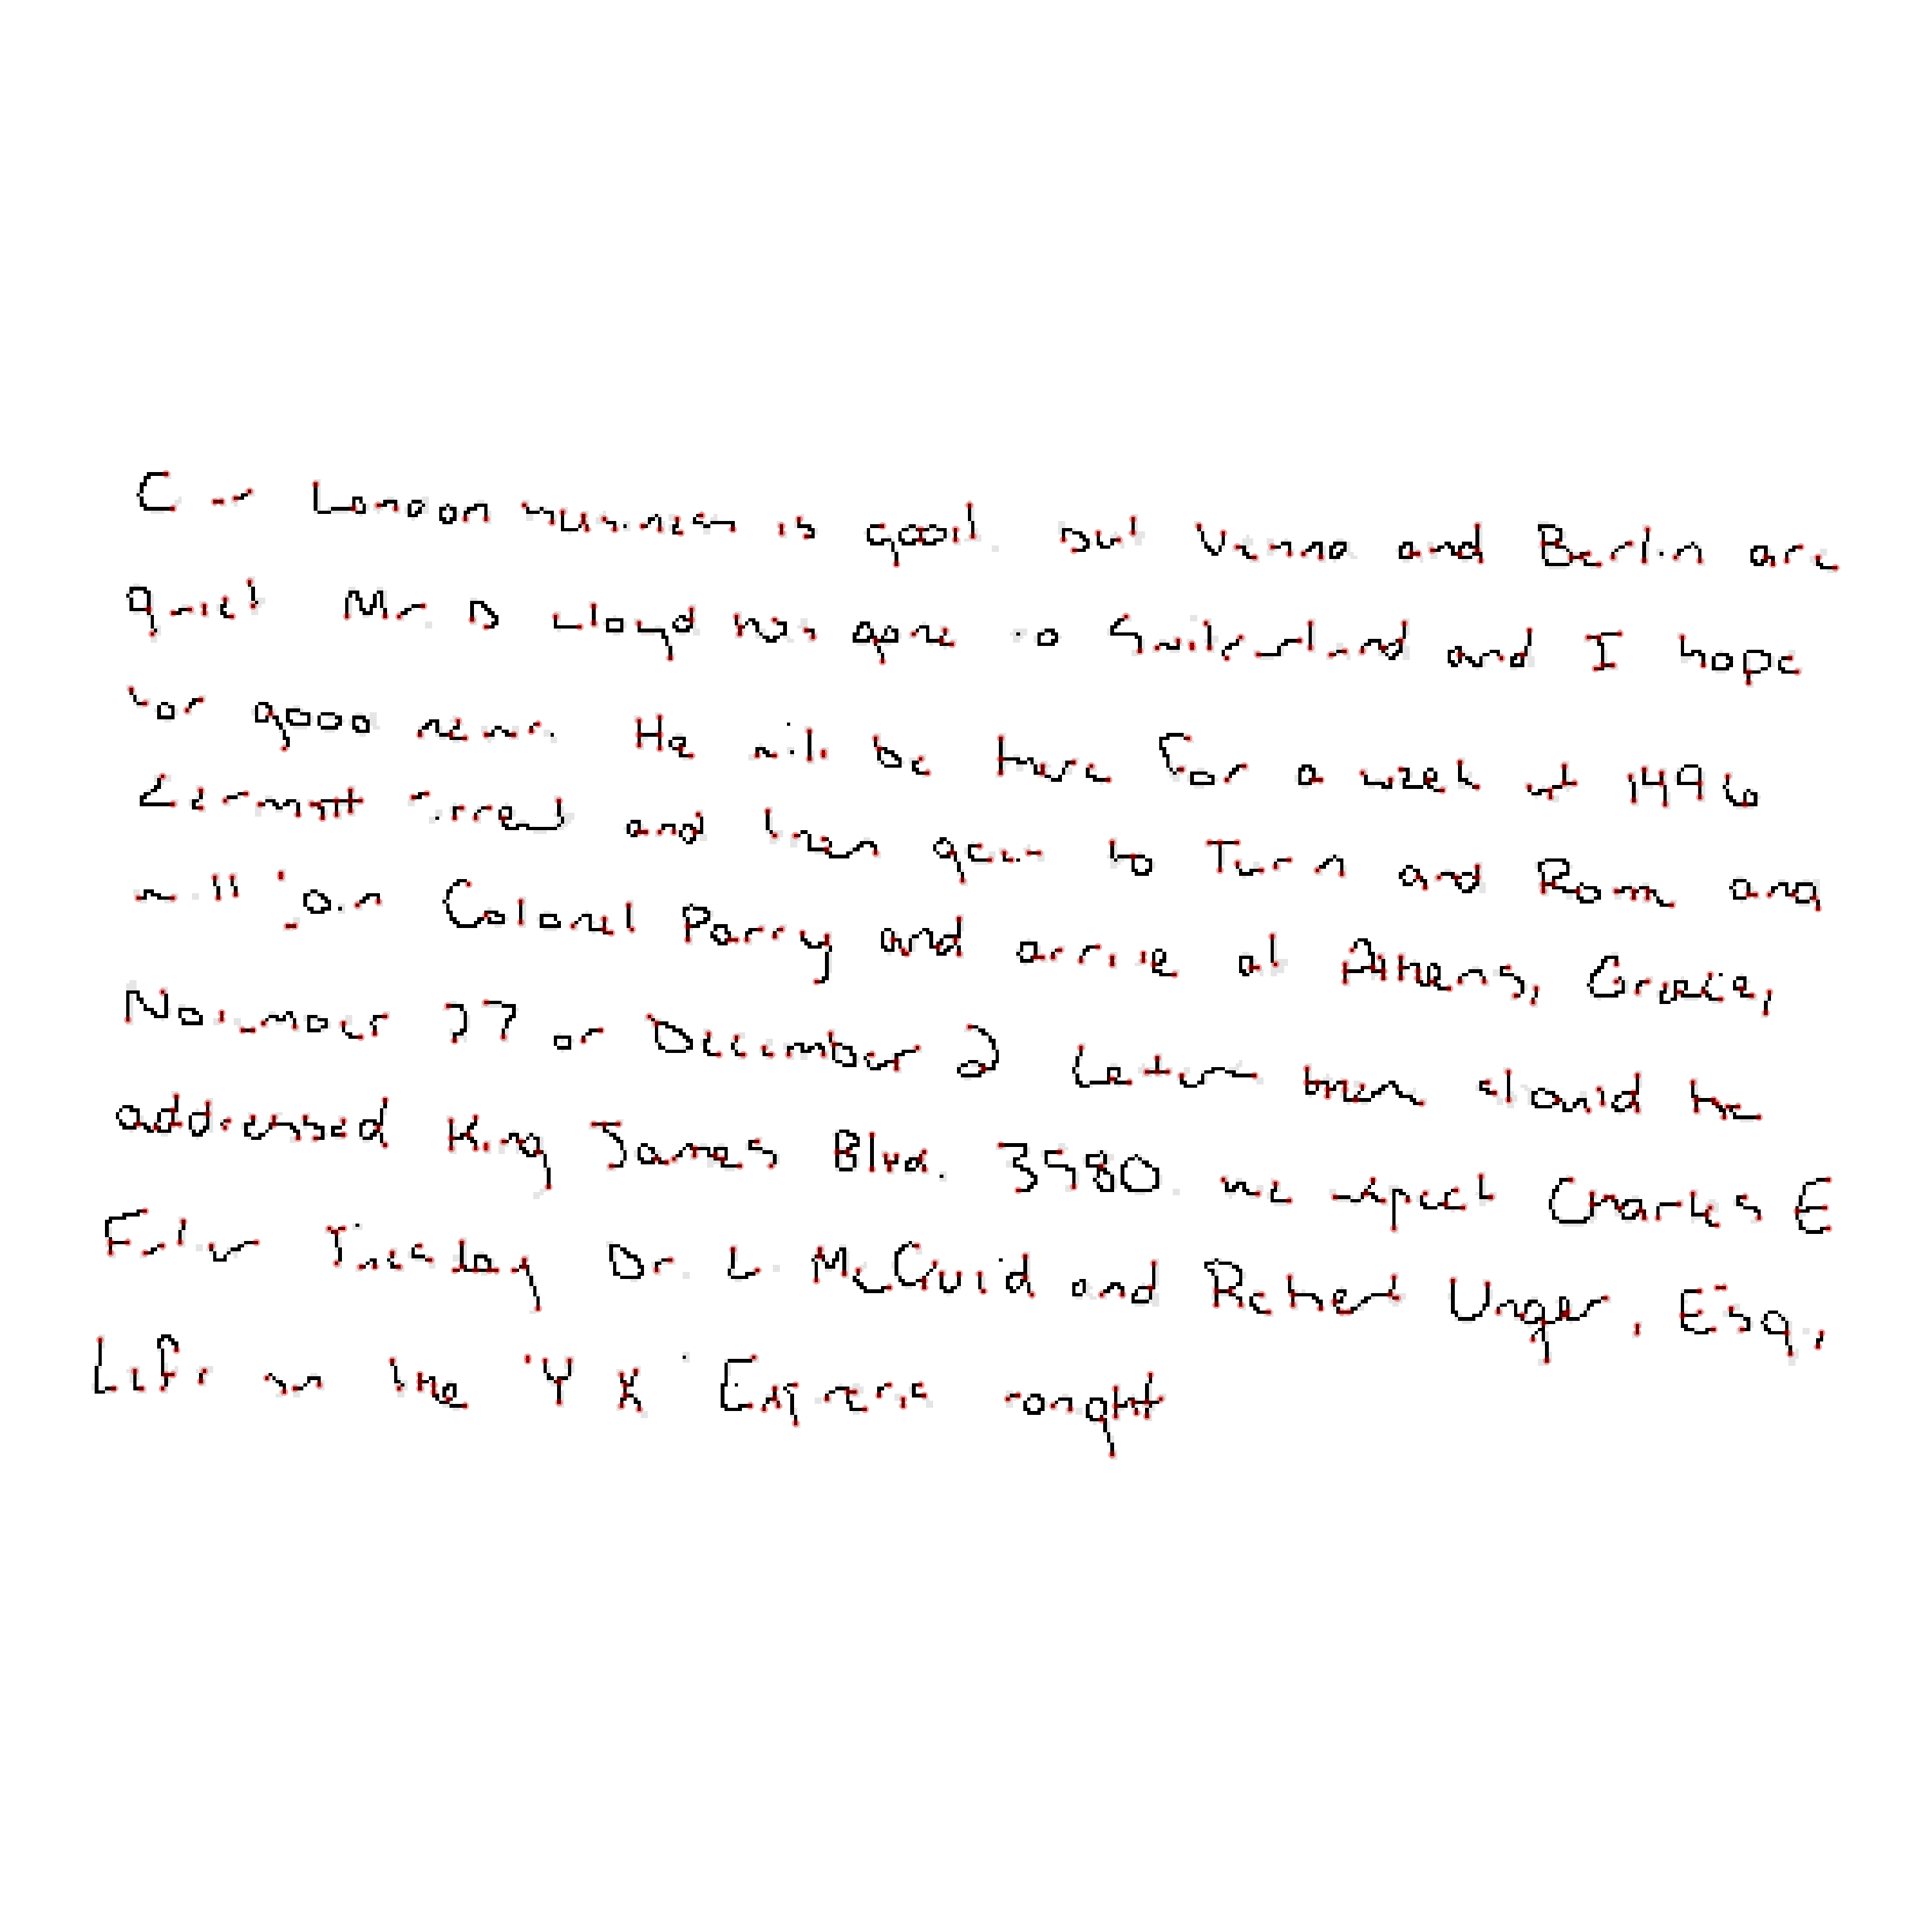 Our London business is good, but Vienna and Berlin are
quiet. Mr. D. Lloyd has gone to Switzerland and I hope
for good news. He will be there for a week at 1496
Zermott Street and then goes to Turin and Rome and
will join Colonel Parry and arrive at Athens, Greece,
November 27 or December 2. Letters there should be
addressed King James Blvd. 3580. We expect Charles E.
Fuller Tuesday. Dr. L. McQuaid and Robert Unger, Esq.,
left on the "Y. X. Express" tonight